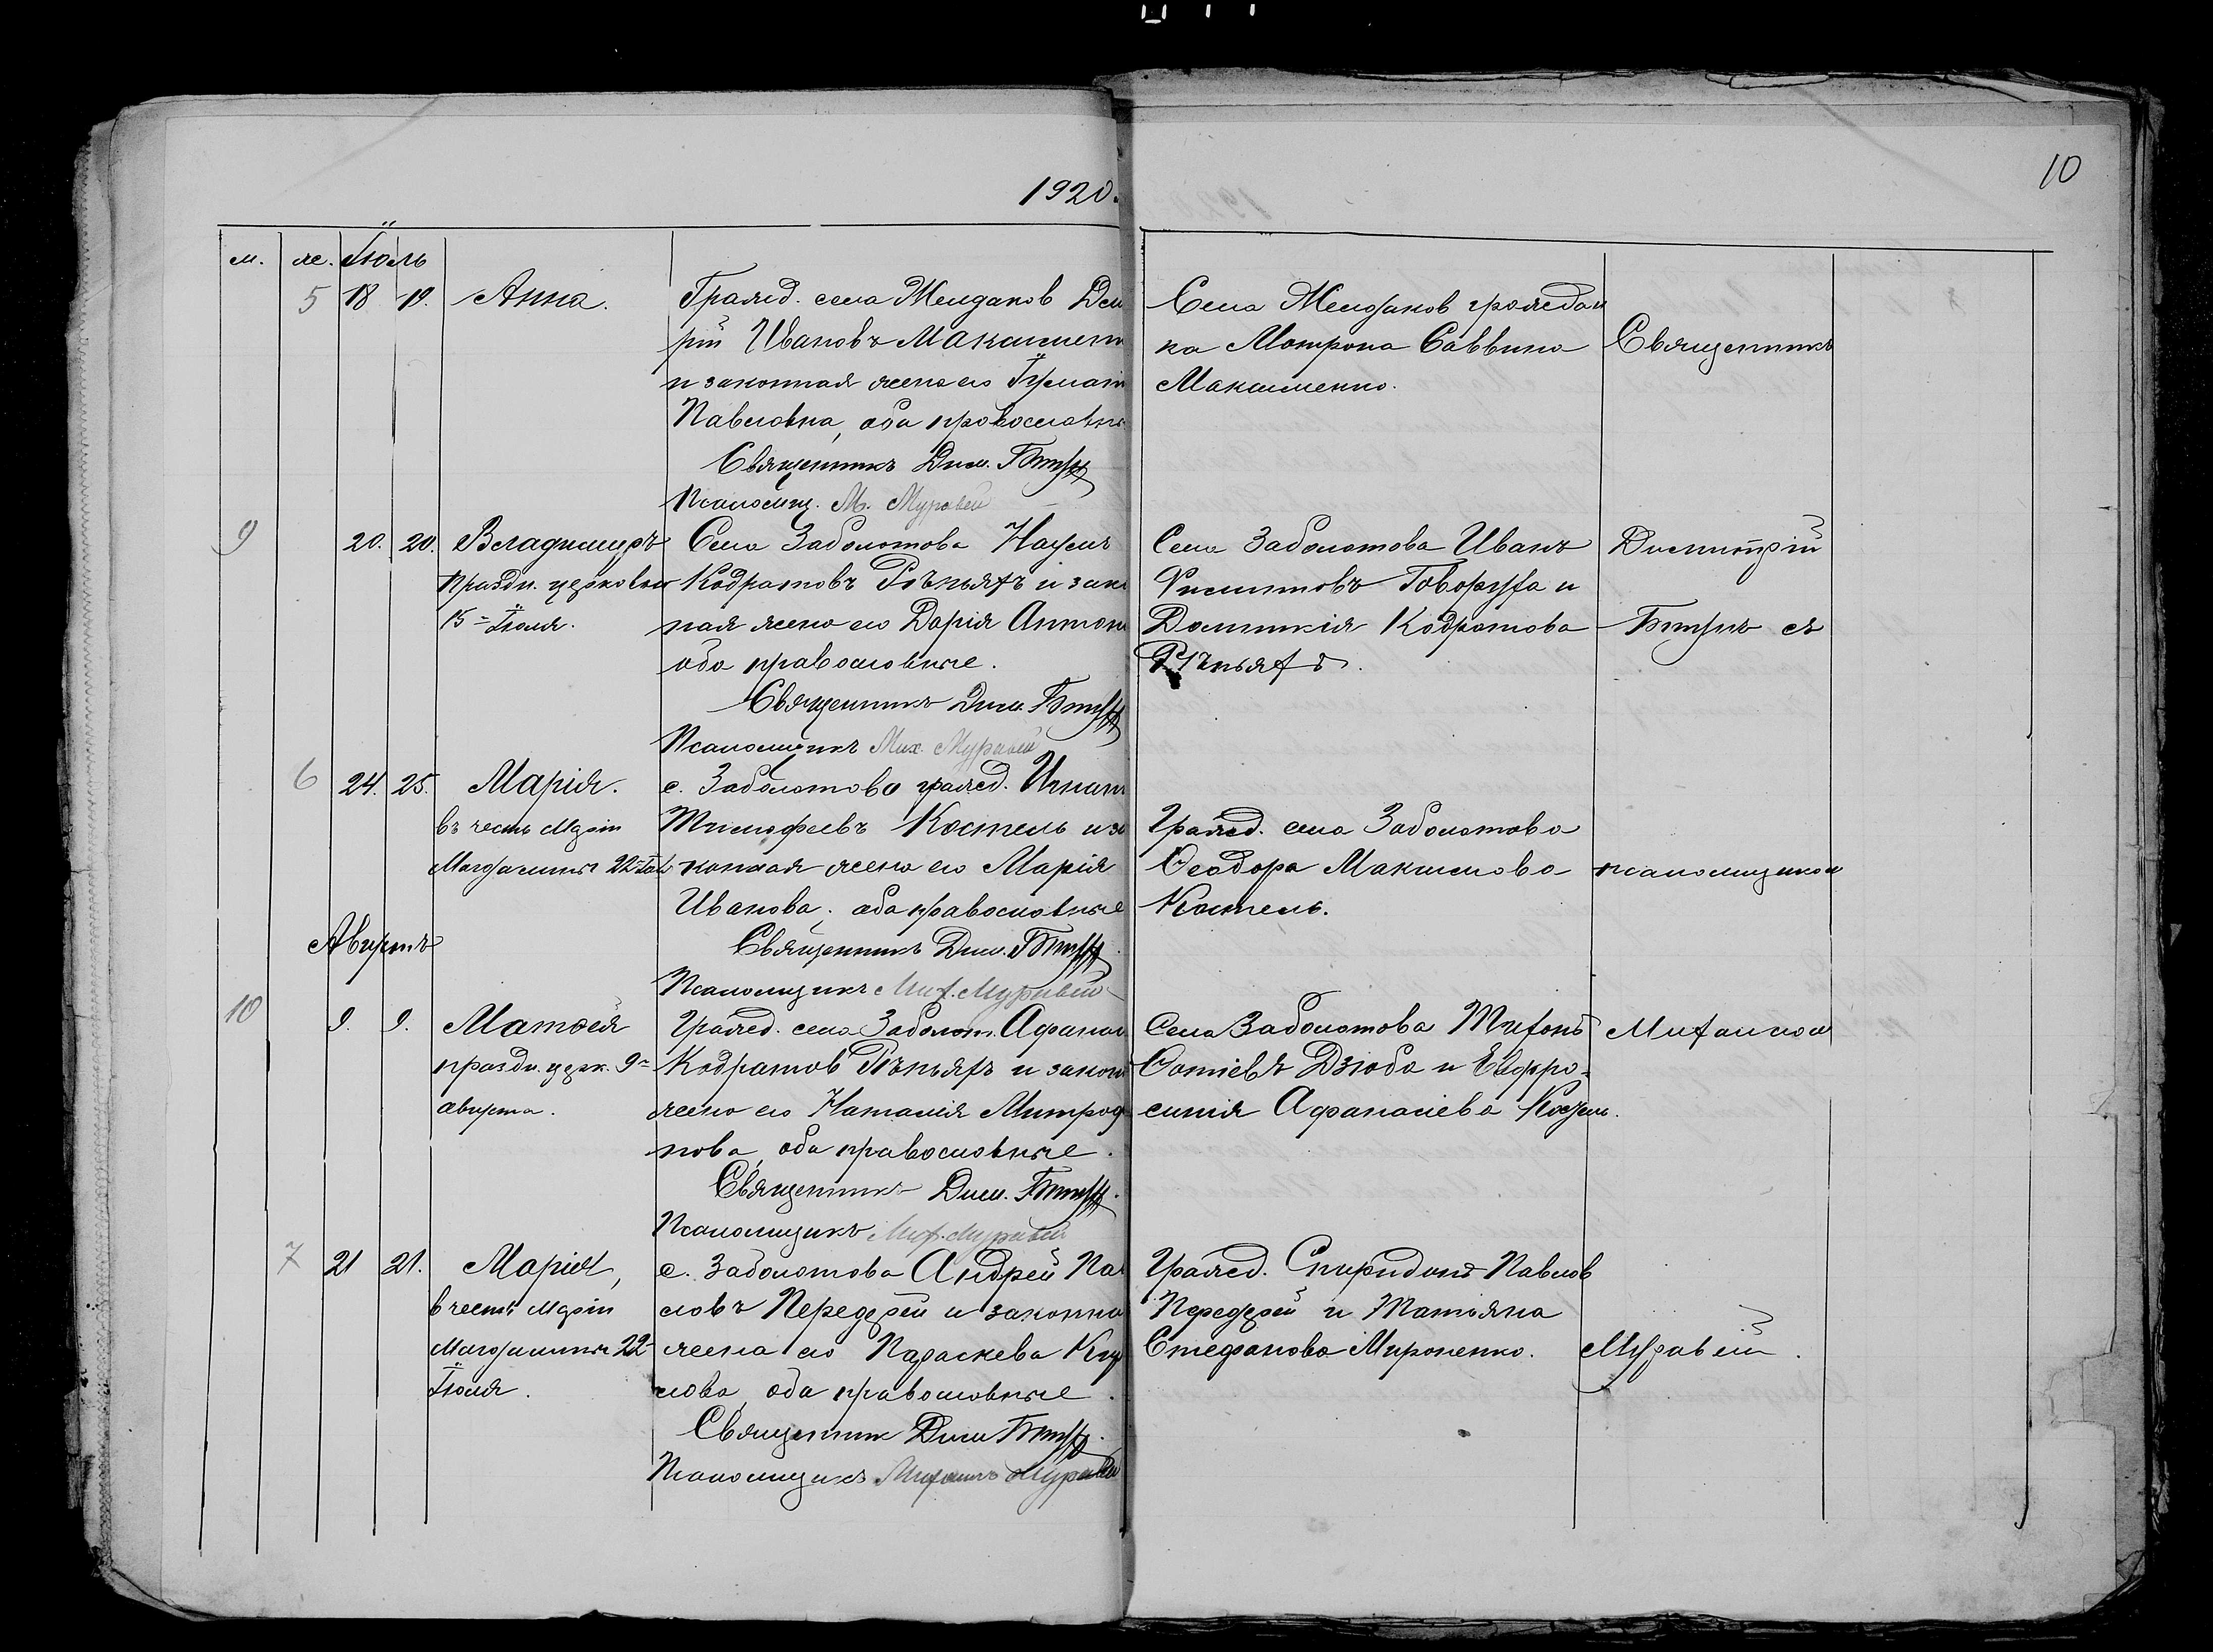 1920.
10
м. ж. Іюль
5 18 19. Анна.
Гражд. села Желдаков Дми
рій Ивановъ Максимен
и законная жена его
Павловна, оба православн
Священникъ Дим.
Псаломщ. М. Муравей
Села Желдаков граждан
ка Матрона Саввина
Максименко.
Священникъ
9 20. 20. Владимиръ
праздн. церковью
15 Іюля.
Села Заболотова Наумъ
Кодратовъ Рѣпьяхъ и зако
ная жена его Дарія Антон
оба православные.
Священникъ Дим.
Псаломщикъ Мих. Муравей
Села Заболотова Иванъ
Филиповъ Говоруха и
Домникія Кодратова
Рѣпьяхъ.
Димитрій
съ
6 24. 25. Марія.
въ честь Маріи
Магдалины 22 Іюл
с. Заболотова гражд. Игнат
Тимофеевъ Костель и за
конная жена его Марія
Иванова, оба православные
Священникъ Дим.
Псаломщикъ Мих. Муравей
Гражд. села Заболотова
Ѳеодора Максимова
Костель.
псаломщиком
Августъ
10 9. 9. Матѳей
праздн. церк. 9
августа.
Гражд. села Заболот. Афанас
Кодратов Рѣпьяхъ и закон
жена его Наталія Митроф
нова, оба православные.
Священникъ Дим.
Псаломщикъ Мих. Муравей
Села Заболотова Тихонъ
Фотіевъ Дзюба и Евфро-
синія Афанасіева
Михаилом
7 21 21. Марія,
в честь Маріи
Магдалины 22
Іюля.
с. Заболотова Андрей Па
ловъ Передерей и законна
жена его Параскева Кир
лова, оба православные.
Священник Дим
Псаломщикъ Михаилъ Муравей
Гражд. Спиридонъ Павлов
Передерей и Татьяна
Стефанова Мироненко.
Муравей.